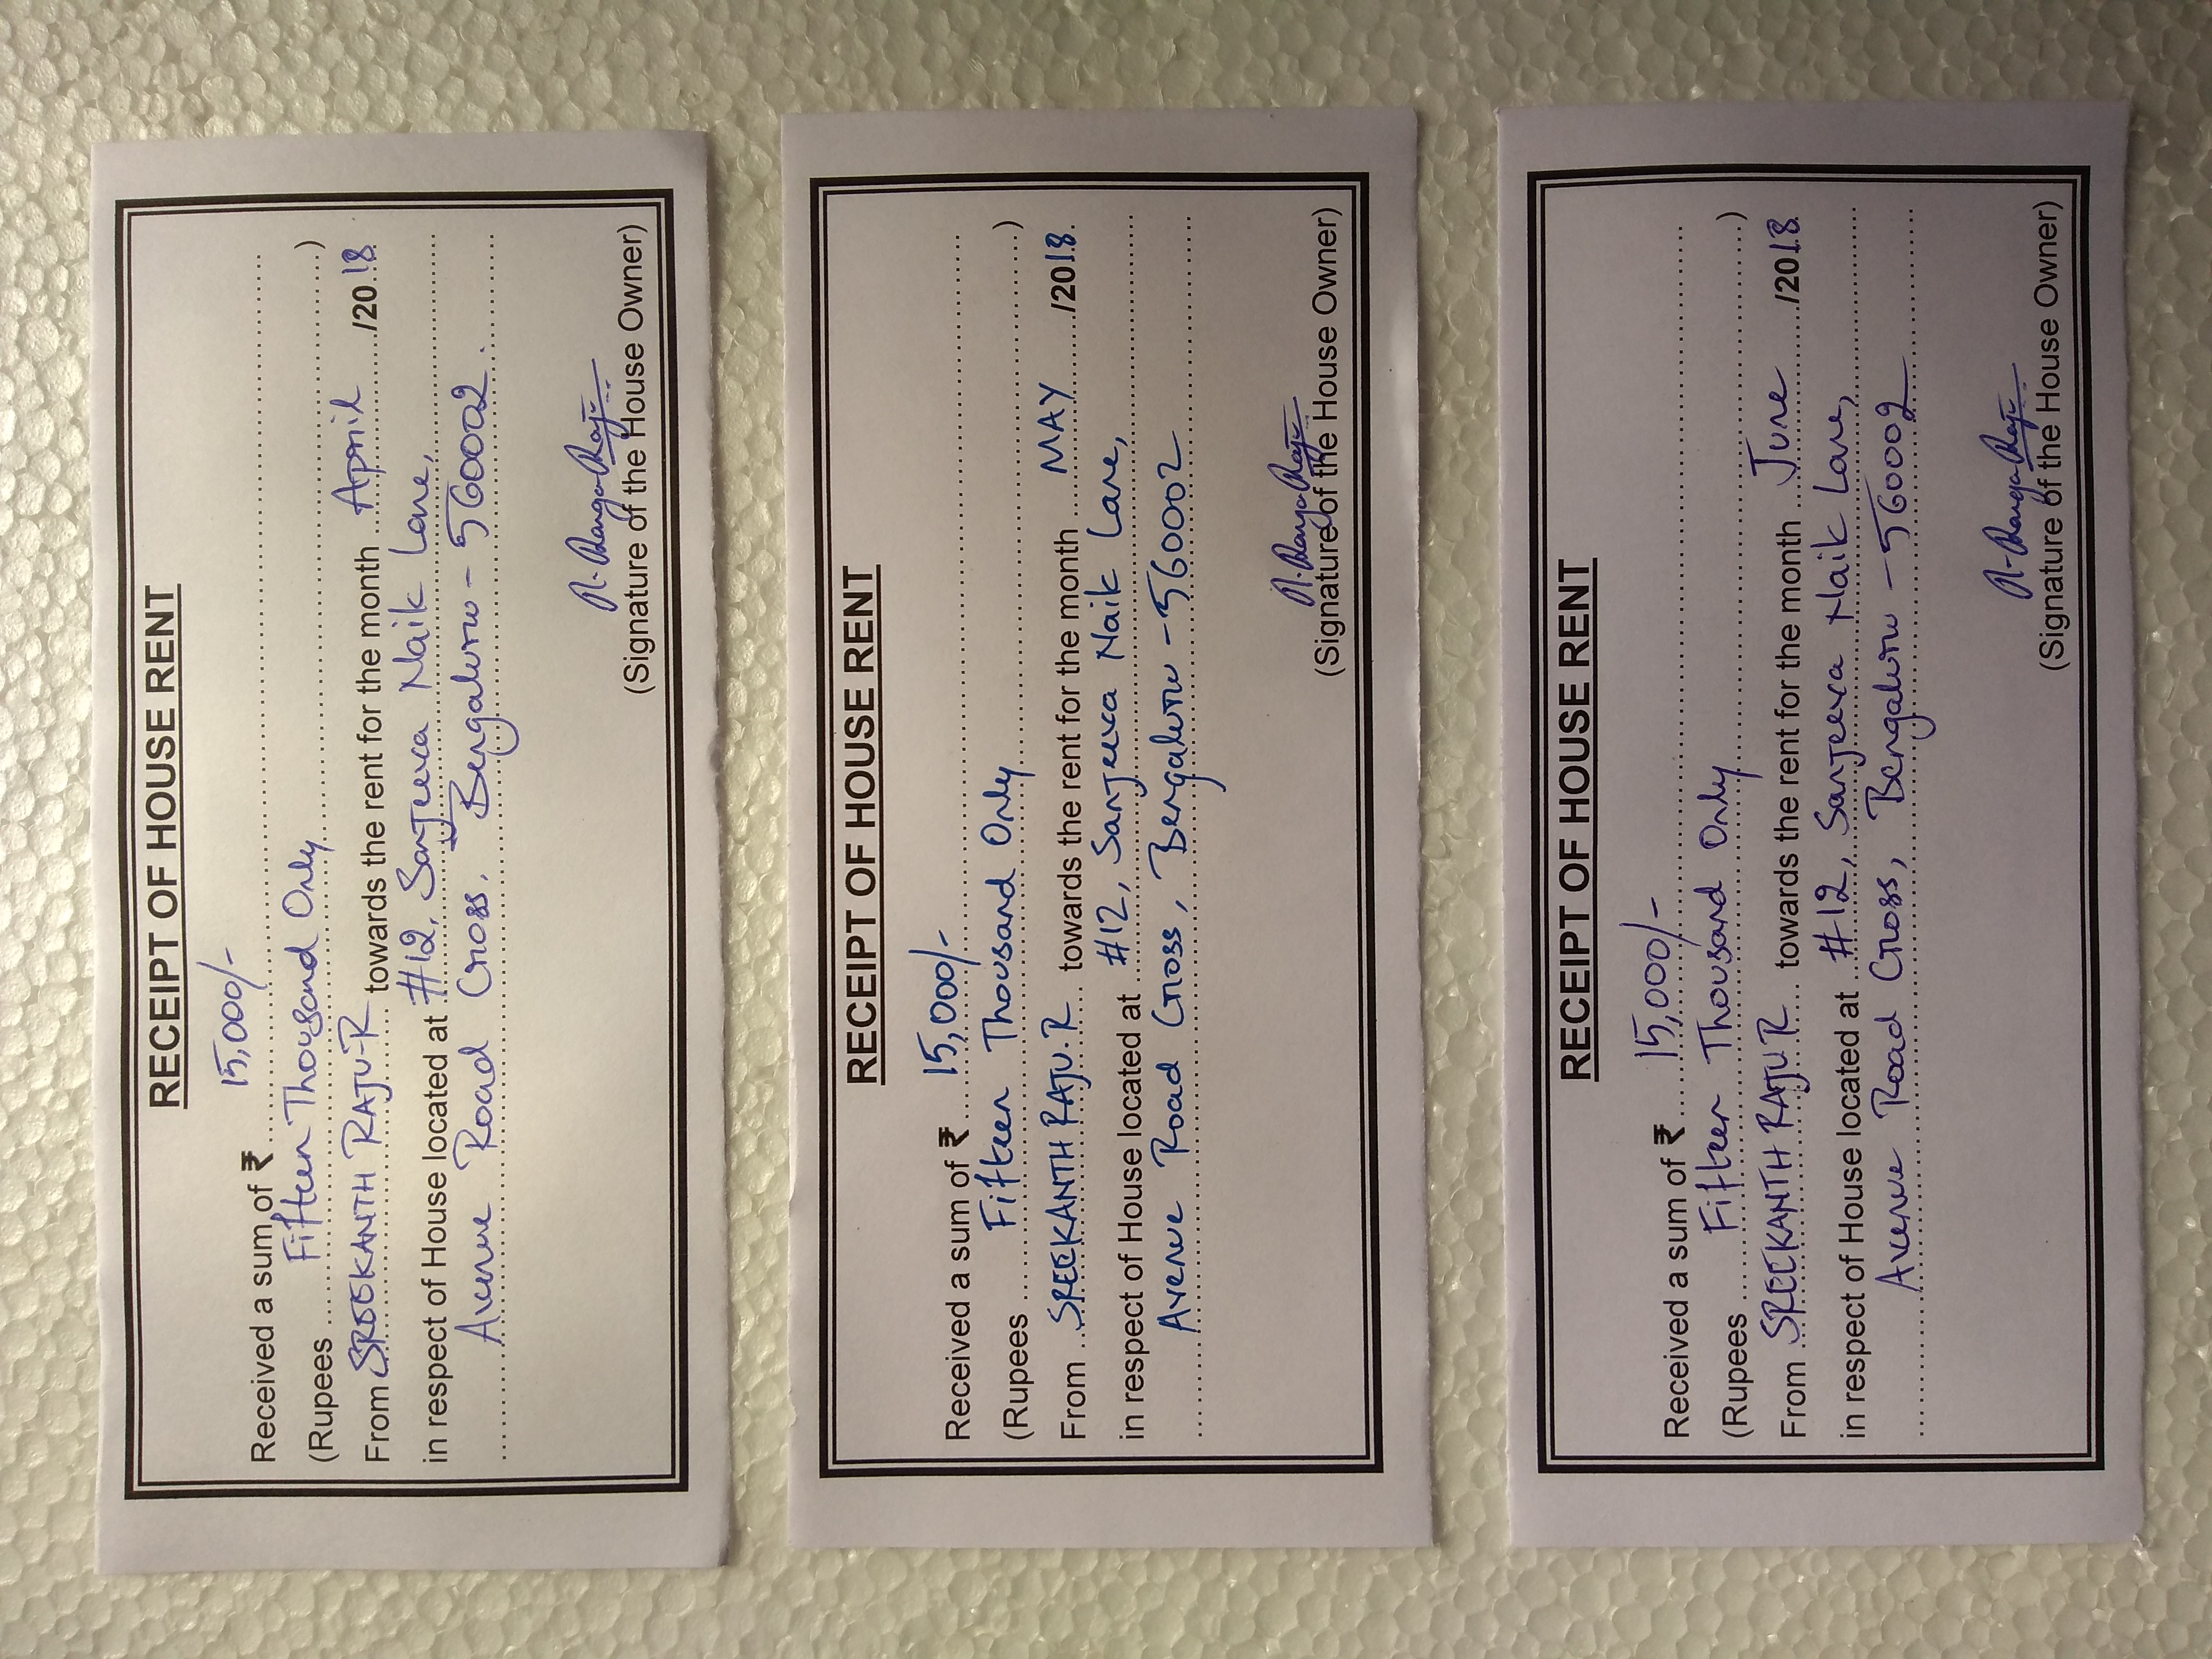 RECEIPT OF HOUSE RENT
Received a sum of ₹ ..... 15,000/- .....
(Rupees ..... Fifteen Thousand Only .....)
From SREEKANTH RAJU-R towards the rent for the month ... April ... /2018
in respect of House located at #12, Sanjeeva Naik Lane,
Avenue Road Cross, Bengaluru - 560002.
R. Ranga Raju
(Signature of the House Owner)
RECEIPT OF HOUSE RENT
Received a sum of ₹ ..... 15,000/- .....
(Rupees ..... Fifteen Thousand Only .....)
From SREEKANTH RAJU.R towards the rent for the month ... MAY ... /2018.
in respect of House located at #12, Sanjeeva Naik Lane,
Avenue Road Cross, Bengaluru - 560002
R. Ranga Raju
(Signature of the House Owner)
RECEIPT OF HOUSE RENT
Received a sum of ₹ ..... 15,000/- .....
(Rupees ..... Fifteen Thousand Only .....)
From SREEKANTH RAJU R towards the rent for the month ... June ... /2018
in respect of House located at #12, Sanjeeva Naik Lane,
Avenue Road Cross, Bengaluru - 560002
R. Ranga Raju
(Signature of the House Owner)